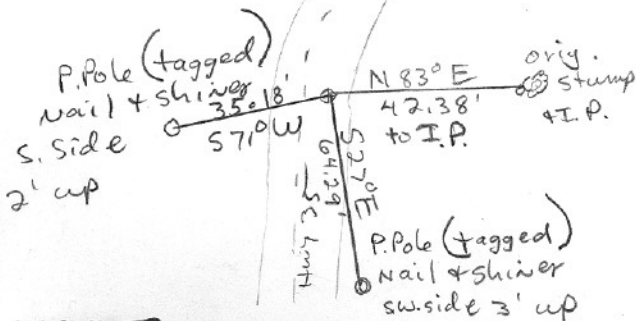 P.Pole (tagged)
Nail & Shiner
S. Side
2' up
35.18'
S71°W
N 83° E
42.38'
to I.P.
orig.
Stump
& I.P.
S27°E
64.29'
Hwy 35
P.Pole (tagged)
Nail & Shiner
SW. side 3' up